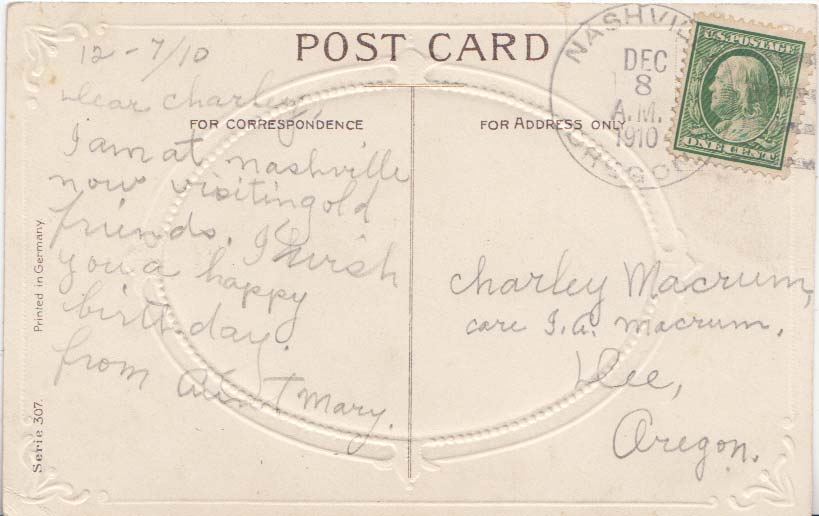 POST CARD
12-7/10
Dear Charley,
FOR CORRESPONDENCE
I am at Nashville
now visiting old
friends. I wish
you a happy
birthday.
from Aunt Mary.
FOR ADDRESS ONLY
NASHVILLE
DEC
8
A.M.
1910
OREGON
U.S. POSTAGE
ONE CENT
Charley Macrum,
care I.A. Macrum.
Dee,
Oregon.
Printed in Germany.
Serie 307.